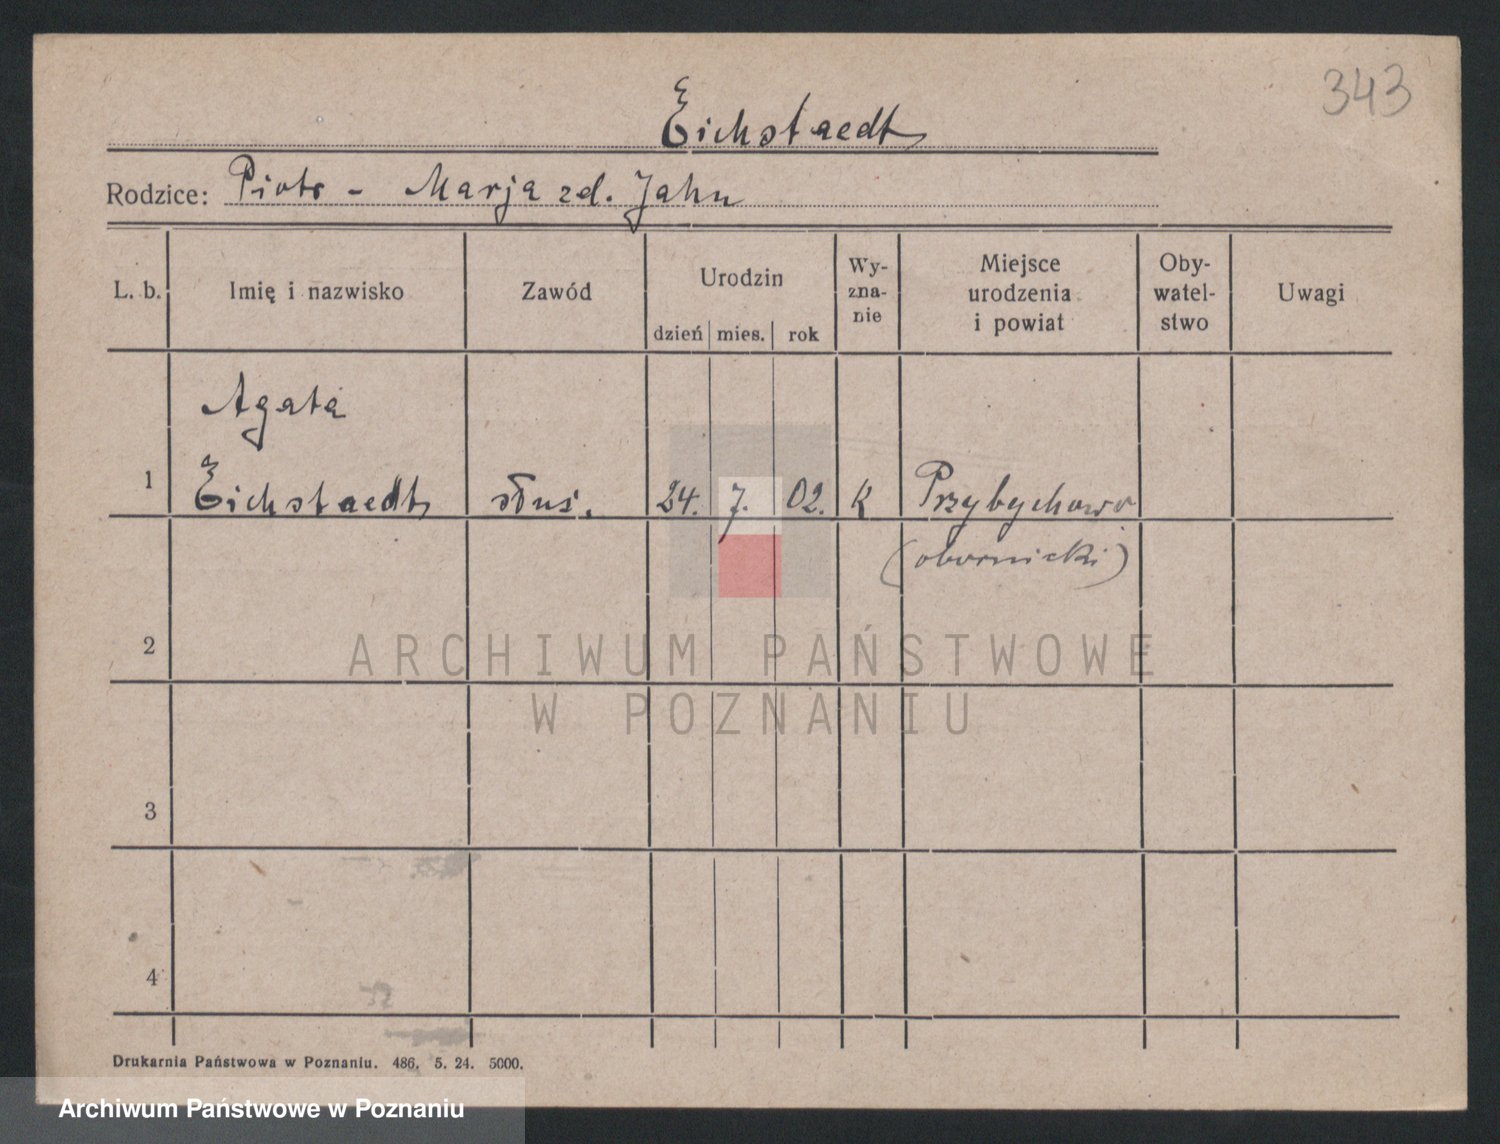 343
Eichstaedt
Rodzice: Piotr - Marja zd. Jahn
L. b. Imię i nazwisko Zawód Urodzin dzień mies. rok Wy-zna-nie Miejsce urodzenia i powiat Oby-watel-stwo Uwagi
Agata
1 Eichstaedt służ. 24. 7. 02. K Przybychowo
(obornicki)
2
ARCHIWUM PAŃSTWOWE
W POZNANIU
3
4
Drukarnia Państwowa w Poznaniu. 486. 5. 24. 5000.
Archiwum Państwowe w Poznaniu